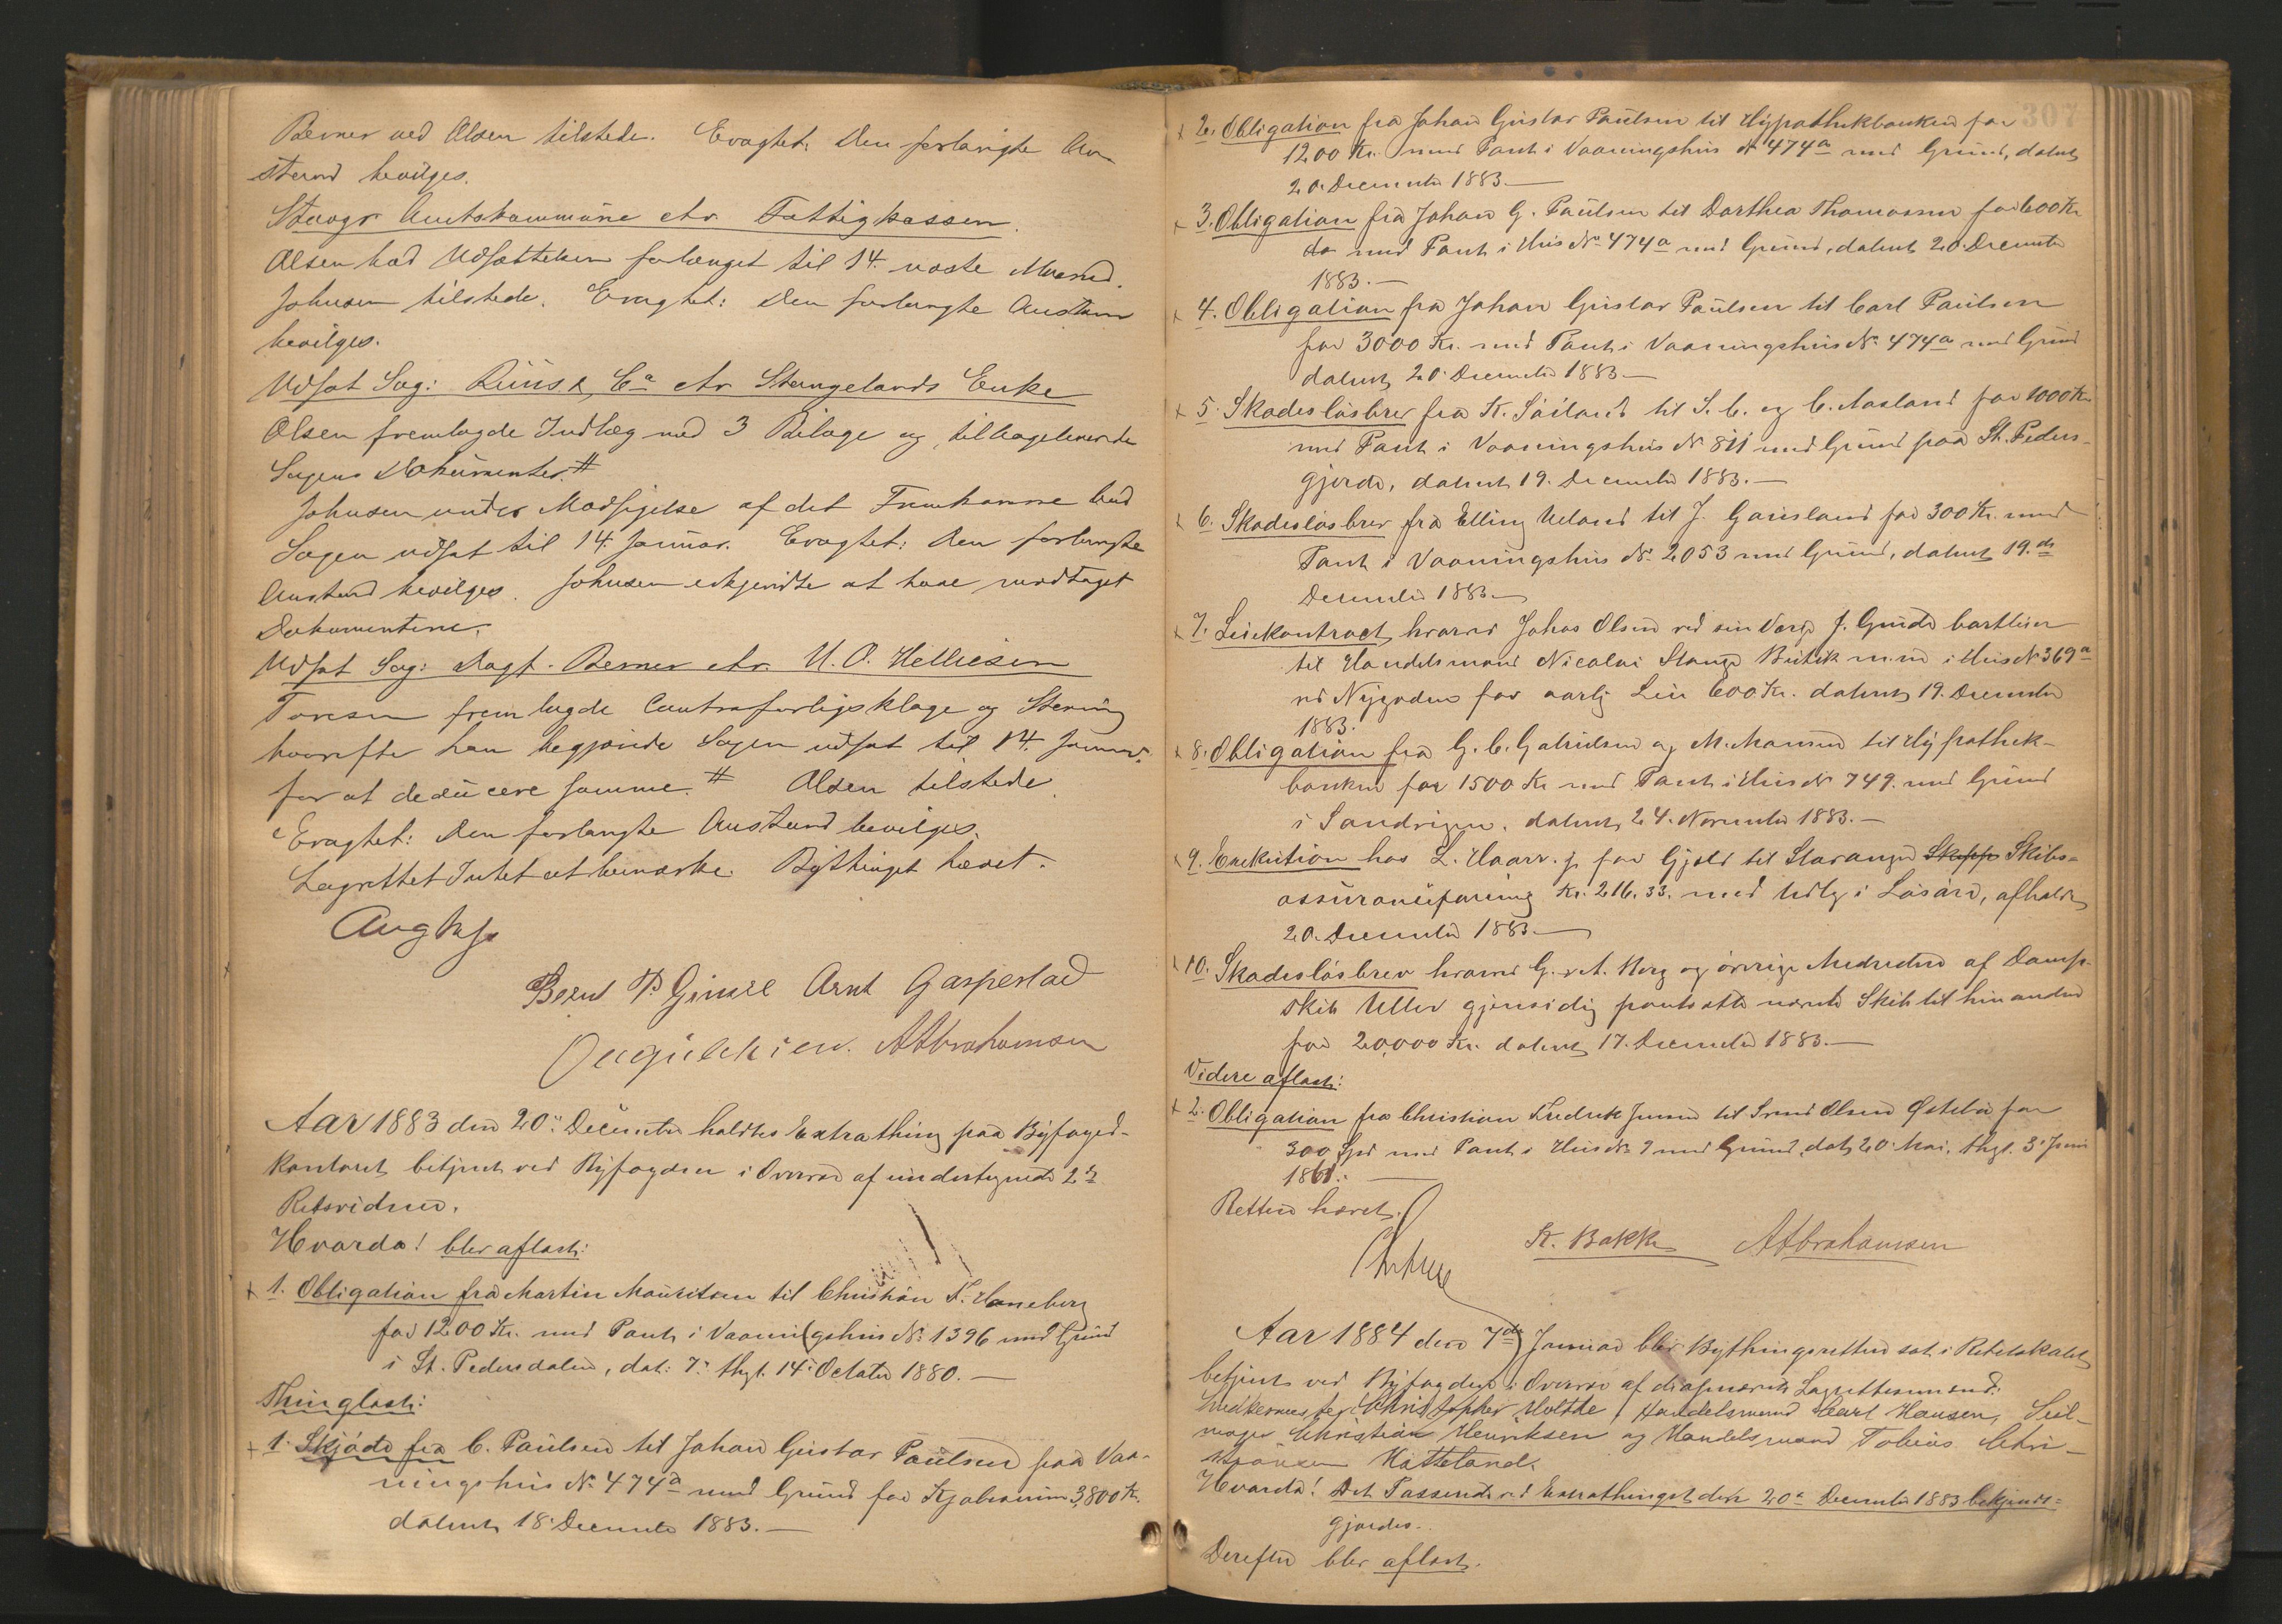 Berner ved Olsen tilstede. Eragtet: Den forlangte An-
stand bevilges.
Stavgr Amtskommune ctr. Fattigkassen.
Olsen bad Udsættelsen forlænget til 14. næste Maaned.
Johnsen tilstede. Eragtet: Den forlangte Anstand
bevilges.
Udsat Sag: Ca ctr Stangelands Enke
Olsen fremlagde Indlæg med 3 Bilage og tilbageleverede
Sagens Dokumenter. #
Johnsen under Modsigelse af det Fremkomne bad
Sagen udsat til 14. Januar. Eragtet: Den forlangte
Anstand bevilges. Johnsen erkjendte at have modtaget
Dokumenterne.
Udsat Sag: Dagf. Berner ctr. U. O. Helliesen
Toresen fremlagde Contraforligsklage og Stevning
hvorefter han begjærede Sagen udsat til 14. Januar
for at deducere samme. # Olsen tilstede.
Eragtet: Den forlangte Anstand bevilges.
Lagrettet Intet at bemærke. Bythinget hævet.
Bernt P. Arnt Gasperstad
AAbrahamsen
Aar 1883 den 20: December holdtes Extrathing paa Byfoged-
kontoret betjent ved Byfogden i Overvær af undertegnede 2de
Retsvidner.
Hvorda! blev aflæst:
+ 1. Obligation fra Martin Mauritzen til Christian F. Haneberg
for 1200 Kr. med Pant i Vaaningshus No 1396 med Grund
i St. Pedersdalen, dat: 7: thgl. 14: October 1880. —
Thinglæst:
+ 1. Skjøde fra C. Paulsen til Johan Gustav Paulsen paa Vaa-
ningshus No 474a med Grund for Kjøbesum 3,800 Kr.
dateret 18. December 1883. —
307
+ 2. Obligation fra Johan Gustav Paulsen til Hypothekbanken for
1200 Kr. med Pant i Vaaningshus No 474a med Grund, dateret
20. December 1883. —
+ 3. Obligation fra Johan G. Paulsen til Dorthea Thomassen for 600 Kr
med Pant i Hus No 474a med Grund, dateret 20. December
1883. —
+ 4. Obligation fra Johan Gustav Paulsen til Carl Paulsen
for 3000 Kr. med Pant i Vaaningshus No 474a med Grund
dateret 20. December 1883 —
+ 5. Skadesløsbrev fra K. til S. C. og C. Aasland for 1000 Kr.
med Pant i Vaaningshus No 811 med Grund paa St. Peders-
gjerde, dateret 19. December 1883. —
+ 6. Skadesløsbrev fra Elling Ueland til J. Gausland for 300 Kr. med
Pant i Vaaningshus No 2053 med Grund, dateret 19.de
December 1883 —
+ 7. Leiekontract hvorved Johas Olsen ved sin Verge J. Gunde bortleier
til Handelsmand Nicolai Stange Butik m.m. i Hus No 369a
ved Nygaden for aarlig Leie 600 Kr. dateret 19. December
1883.
+ 8. Obligation fra G. C. Gabrielsen og M. Hansen til Hypothek-
banken for 1500 Kr med Pant i Hus No 749. med Grund
i Sandvigen, dateret 24. November 1883. —
+ 9. Exekution hos L. Haarr jr. for Gjæld til Stavanger Skibs-
assuranceforening Kr. 216.33. med Udlæg i Løsøre, afholdt
20. December 1883 —
+ 10. Skadesløsbrev hvorved G. & A. Berg og øvrige Medredere af Damp-
skib Uller gjensidig pantsætte nævnte Skib til hinanden
for 20,000 Kr. dateret 17. December 1883. —
Videre aflæst:
+ 2. Obligation fra Christian Fredrik Jensen til Svend Olsen Østebø for
300 Spd med Pant i Hus No 9 med Grund, dat 20. Mai, thgl. 3. Juni
1861. —
Retten hævet.
K. Bakke AAbrahamsen
Aar 1884 den 7de Januar blev Bythingsretten sat i Retslokalet
betjent ved Byfogden i Overvær af de opnævnte Lagrettesmænd:
Snedkermester Christopher Holthe, Handelsmand Carl Hansen, Seil-
mager Christian Henriksen og Handelsmand Tobias Chri-
stiansen Hatteland.
Hvorda! Det Passerede ved Extrathinget den 20de December 1883 bekjendt-
gjordes.
Derefter blev aflæst.